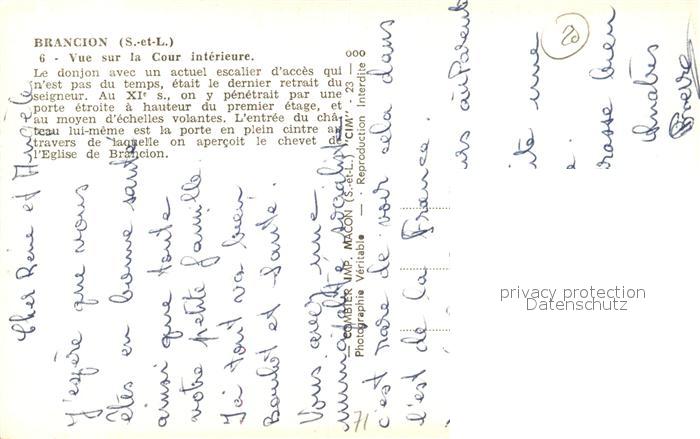 BRANCION (S.-et-L.)
6 - Vue sur la Cour intérieure.
Le donjon avec un actuel escalier d'accès qui
n'est pas du temps, était le dernier retrait du
seigneur. Au XIe s., on y pénétrait par une
porte étroite à hauteur du premier étage, et
au moyen d'échelles volantes. L'entrée du châ-
teau lui-même est la porte en plein cintre au
travers de laquelle on aperçoit le chevet de
l'Eglise de Brancion.
000
COMBIER IMP. MACON (S.-et-L.) "CIM" - 23
Photographie Véritable - Reproduction Interdite
Cher René et Angèle
J'espère que vous
êtes en bonne santé
ainsi que toute
votre petite famille.
Ici tout va bien
Boulot et santé.
Vous avez une
municipalité socialiste
c'est rare de voir cela dans
l'est de la France.
71
ite une
e.
rasse bien
Pierre
20
privacy protection
Datenschutz